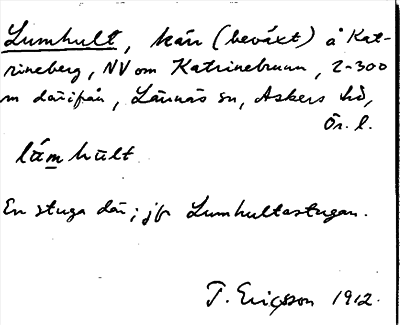 Lumhult, kärr (beväxt) å Kat-
rineberg, NV om Katrinebrunn, 2-300
m därifrån, Lännäs sn, Askers hd,
Ör. l.
lùmhūlt
En stuga där; jfr Lumhultastugan.
T. Ericsson 1912.